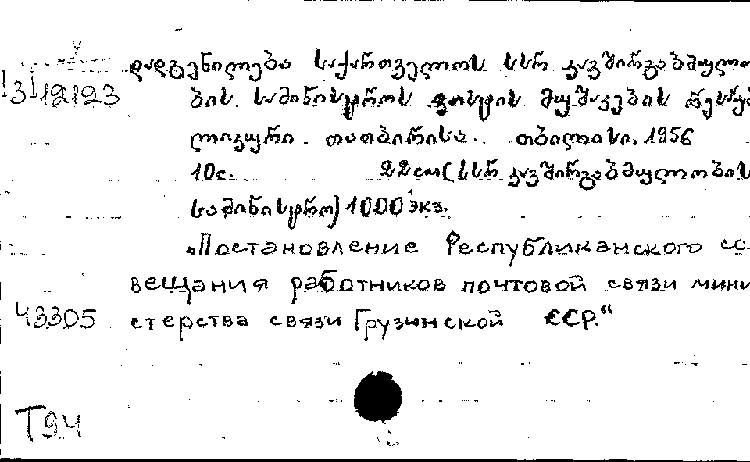 დადგენილება საქართველოს სსრ კავშირგაბმულო
3 12123 ბის სამინისტროს ფოსტის მუშაკების რესპუბ
ლიკური თათბირისა. თბილისი, 1956
10с. 22см (სსრ კავშირგაბმულობის
სამინისტრო) 1000 экз.
„Постановление Республиканского со
вещания работников почтовой связи мини
43305 стерства связи Грузинской ССР.“
Т94